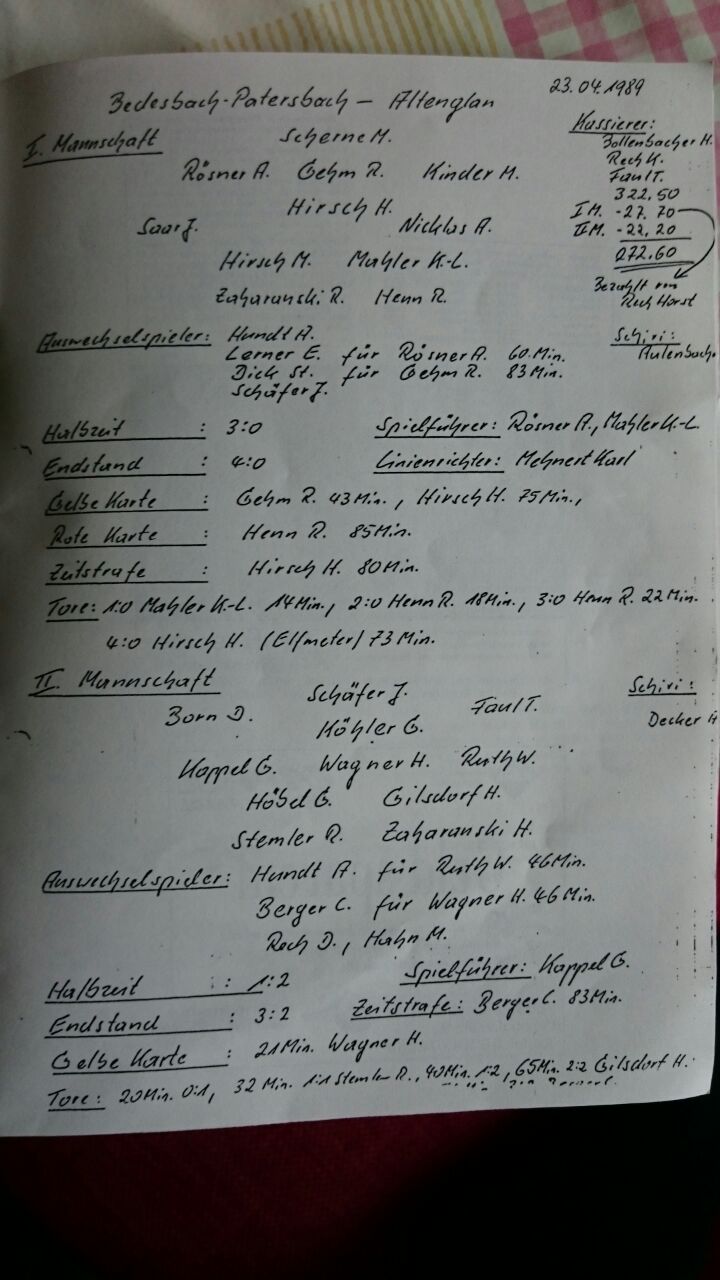 23.04.1989
Bedesbach-Patersbach – Altenglan
Kassierer:
I. Mannschaft
Scherne M.
Bollenbacher H.
Rech K.
Rösner A. Gehm R. Kinder M.
Faul T.
322,50
Hirsch H.
I M. -27,70
Saar J. Nicklas A.
II M. -22,20
272,60
Hirsch M. Mahler K.-L.
Bezahlt von
Rech Horst
Zaharanski R. Henn R.
Auswechselspieler: Hundt A.
Schiri:
Lerner E. für Rösner A. 60 Min.
Aulenbach
Dick St. für Gehm R. 83 Min.
Schäfer J.
Halbzeit : 3:0 Spielführer: Rösner A., Mahler K.-L.
Endstand : 4:0 Linienrichter: Mehnert Karl
Gelbe Karte : Gehm R. 43 Min., Hirsch H. 75 Min.,
Rote Karte : Henn R. 85 Min.
Zeitstrafe : Hirsch H. 80 Min.
Tore: 1:0 Mahler K.-L. 14 Min., 2:0 Henn R. 18 Min., 3:0 Henn R. 22 Min.
4:0 Hirsch H. (Elfmeter) 73 Min.
II. Mannschaft
Schäfer J.
Schiri:
Born D. Köhler G. Faul T.
Decker H
Kappel G. Wagner H. Ruth W.
Höbel G. Gilsdorf H.
Stemler R. Zaharanski H.
Auswechselspieler: Hundt A. für Ruth W. 46 Min.
Berger C. für Wagner H. 46 Min.
Rech D., Hahn M.
Halbzeit : 1:2 Spielführer: Kappel G.
Endstand : 3:2 Zeitstrafe: Berger C. 83 Min.
Gelbe Karte : 21 Min. Wagner H.
Tore: 20 Min. 0:1, 32 Min. 1:1 Stemler R., 40 Min. 1:2, 65 Min. 2:2 Gilsdorf H.